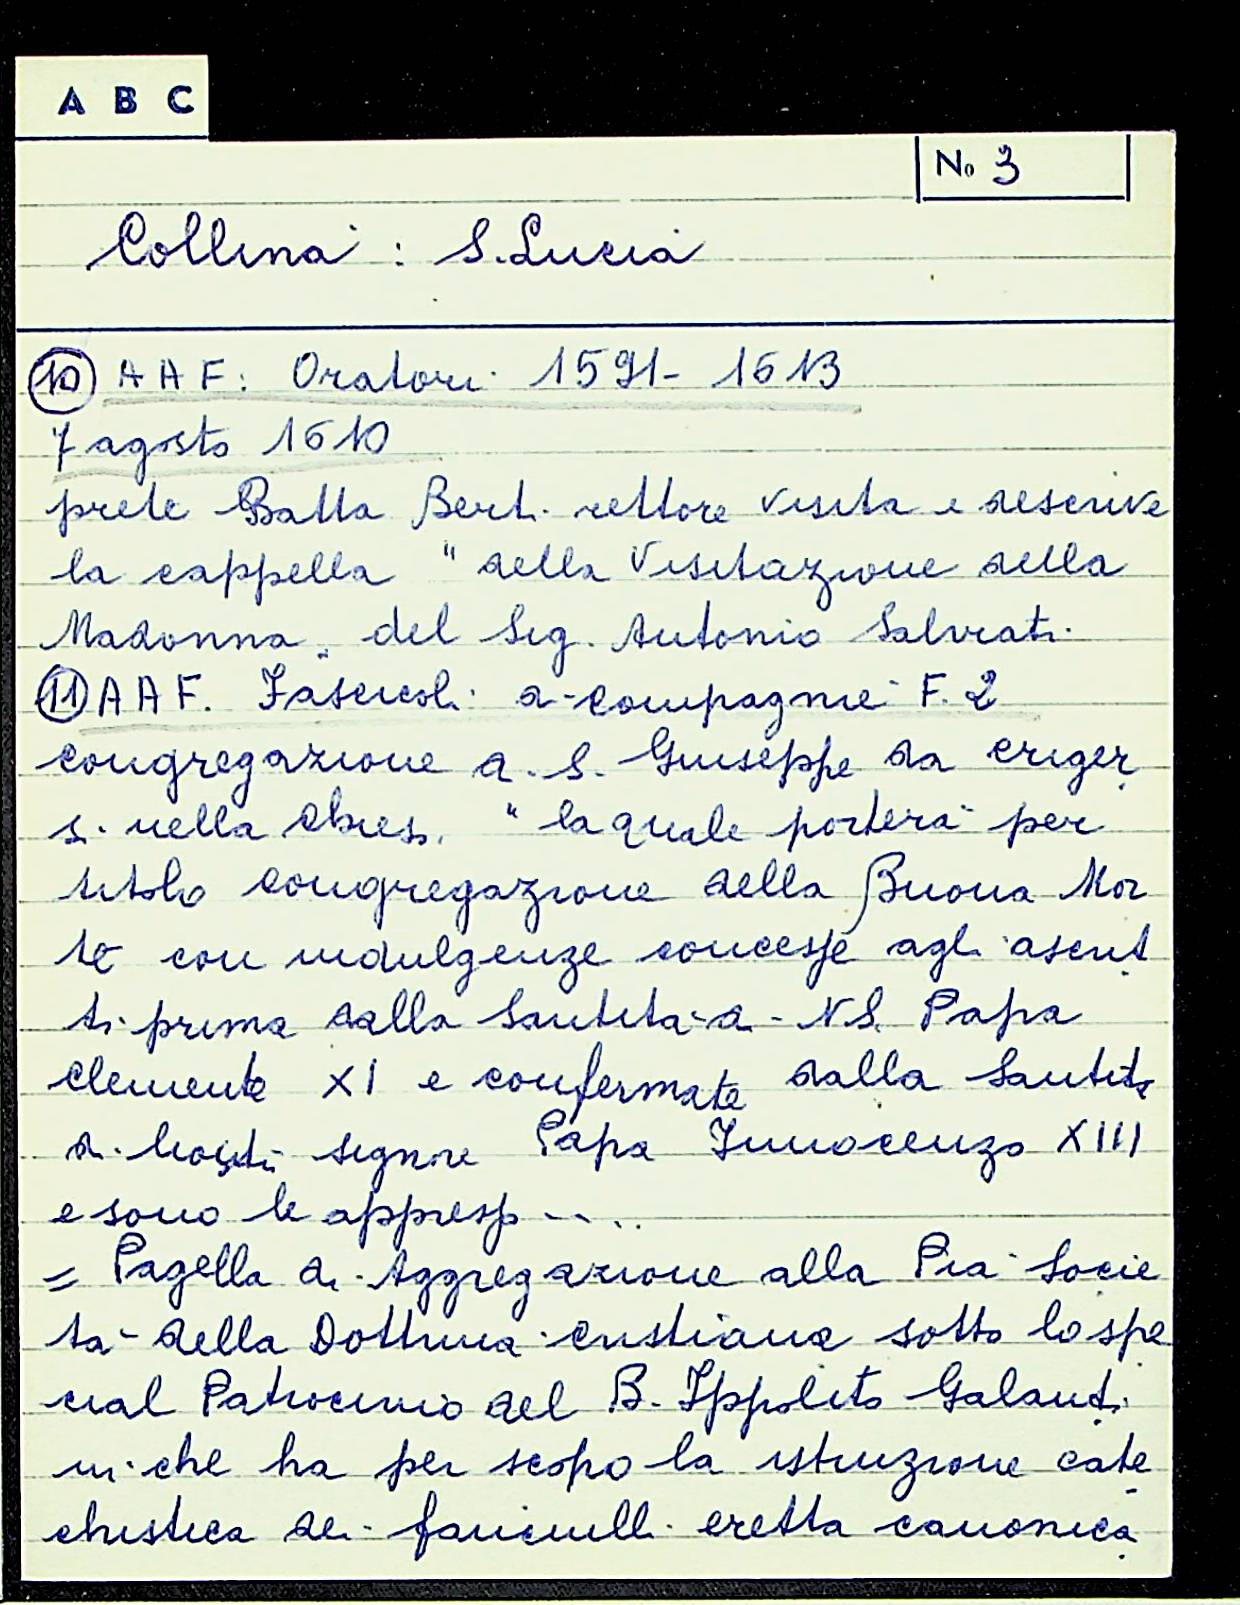 A B C
No 3
Collina : S. Lucia
10 A A F: Oratori 1591- 1613
7 agosto 1610
prete Batta Bert. rettore visita e descrive
la cappella " della Visitazione della
Madonna " del Sig. Antonio Salviati
11 A A F. Fascicoli di compagnie F. 2
congregazione di S. Giuseppe da eriger
si nella chiesa " la quale porterà per
titolo congregazione della Buona Mor
te con indulgenze concesse agli ascrit
ti prima dalla Santità di N.S. Papa
Clemente XI e confermate dalla Santità
di signore Papa Innocenzo XIII
e sono le appresso ....
= Pagella di Aggregazione alla Pia Socie
tà della Dottrina cristiana sotto lo spe
cial Patrocinio del B. Ippolito Galanti
ni che ha per scopo la istruzione cate
chistica dei fanciulli eretta canonica